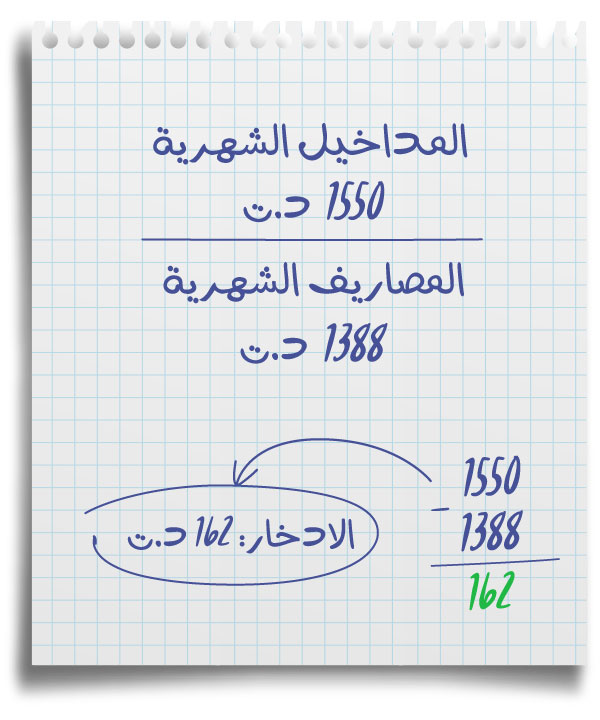 المداخيل الشهرية
1550 د.ت
المصاريف الشهرية
1388 د.ت
1550
-
1388
162
الادخار: 162 د.ت